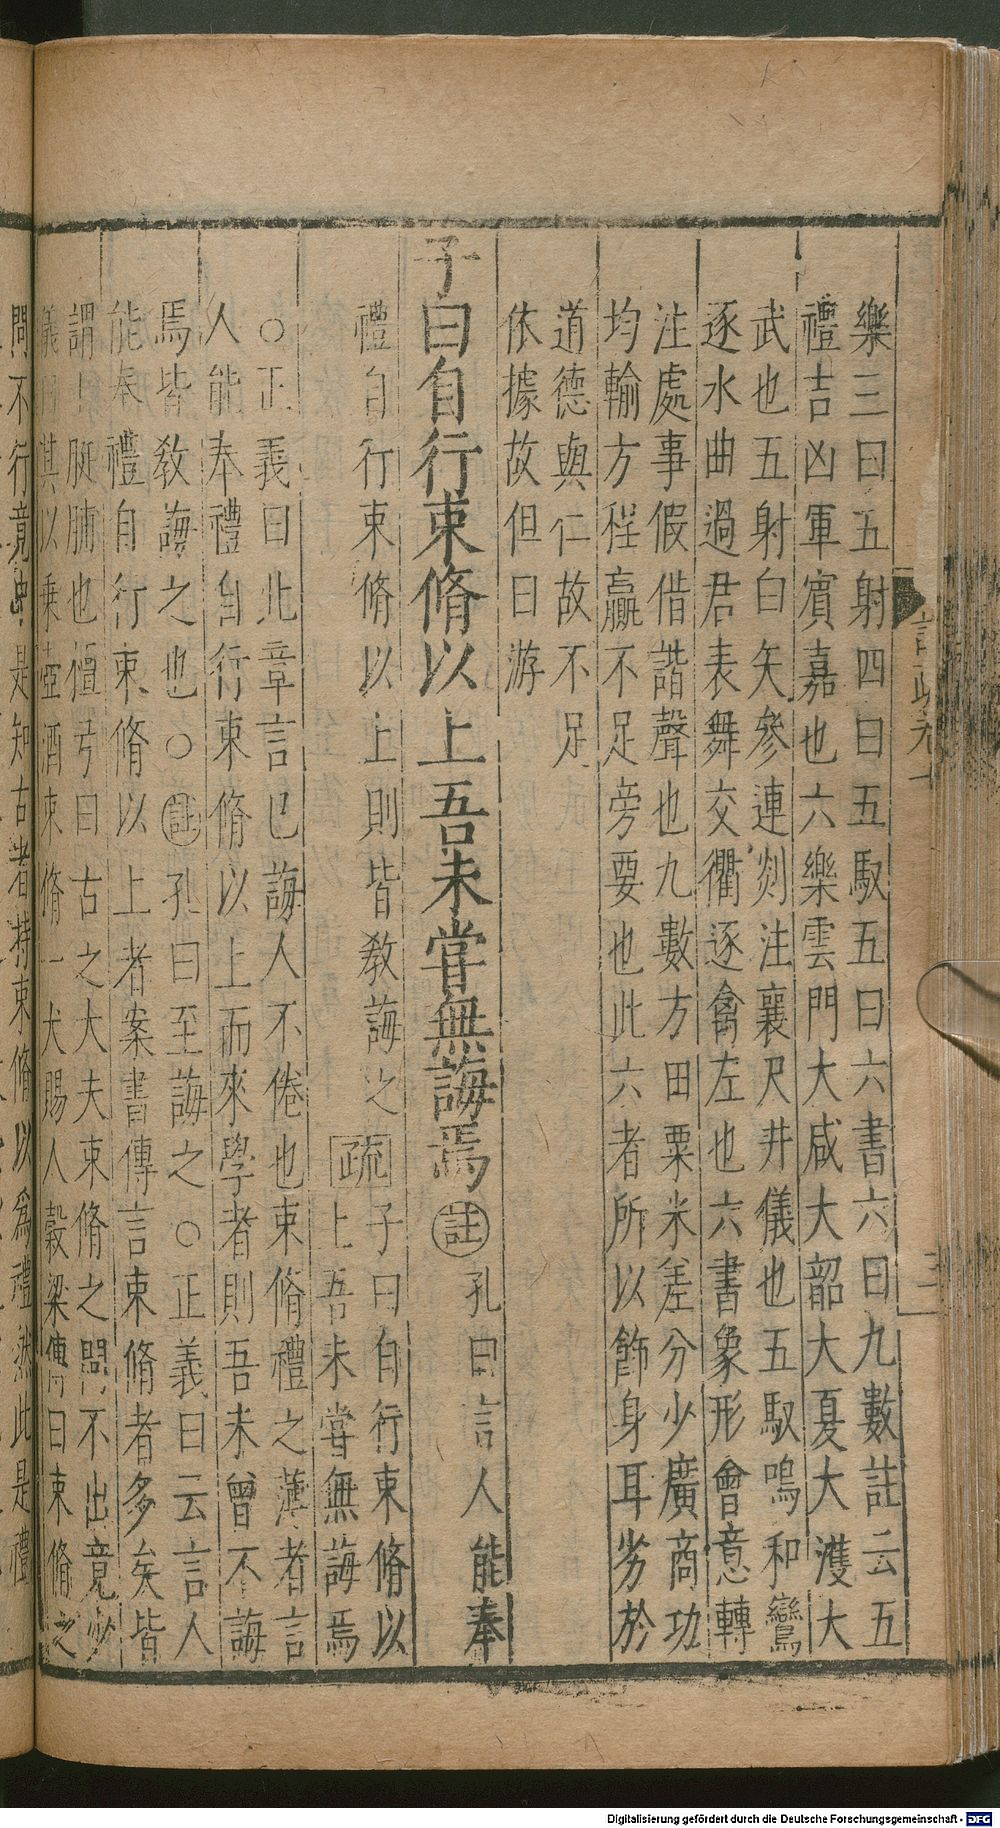 樂三曰五射四曰五馭五曰六書六曰九數註云五
禮吉凶軍賓嘉也六樂雲門大咸大韶大夏大濩大
武也五射白矢參連剡注襄尺井儀也五馭鳴和鸞
逐水曲過君表舞交衢逐禽左也六書象形會意轉
注處事假借諧聲也九數方田粟米差分少廣商功
均輸方程贏不足旁要也此六者所以飾身耳劣於
道德與仁故不足
依據故但曰游
子曰自行束脩以上吾未嘗無誨焉
註
孔曰言人能奉
禮自行束脩以上則皆教誨之
疏
子曰自行束脩以
上吾未嘗無誨焉
○正義曰此章言已誨人不倦也束脩禮之薄者言
人能奉禮自行束脩以上而來學者則吾未曾不誨
焉皆教誨之也○註孔曰至誨之○正義曰云言人
能奉禮自行束脩以上者案書傳言束脩者多矣皆
謂 脡脯也檀弓曰古之大夫束脩之問不出竟少
儀 其以乗壺酒束脩一犬賜人穀梁傳曰束脩之
問不行竟中是知古者持束脩以為禮然此是禮
三
Digitalisierung gefördert durch die Deutsche Forschungsgemeinschaft - DFG